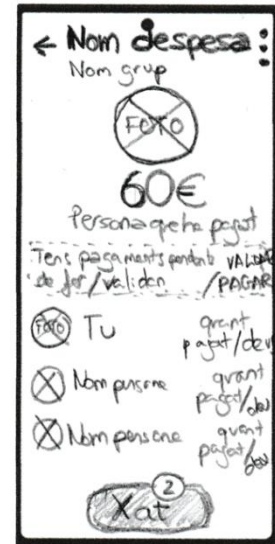 ← Nom despesa
Nom grup
FOTO
60€
Persona que ha pagat
Tens pagaments pendents VALIDAR
de fer/validar /PAGAR
FOTO Tu quant
pagat/deu
Nom persona quant
pagat/deu
Nom persona quant
pagat/deu
2
Xat